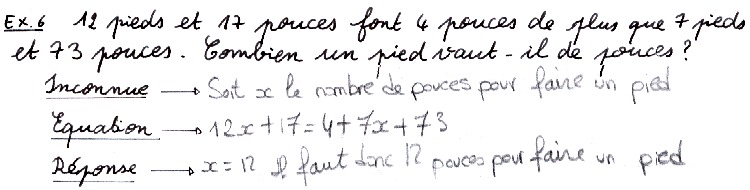 Ex.6 12 pieds et 17 pouces font 4 pouces de plus que 7 pieds
et 73 pouces. Combien un pied vaut-il de pouces ?
Inconnue → Soit x le nombre de pouces pour faire un pied
Equation → 12x+17=4+7x+73
Réponse → x=12 Il faut donc 12 pouces pour faire un pied